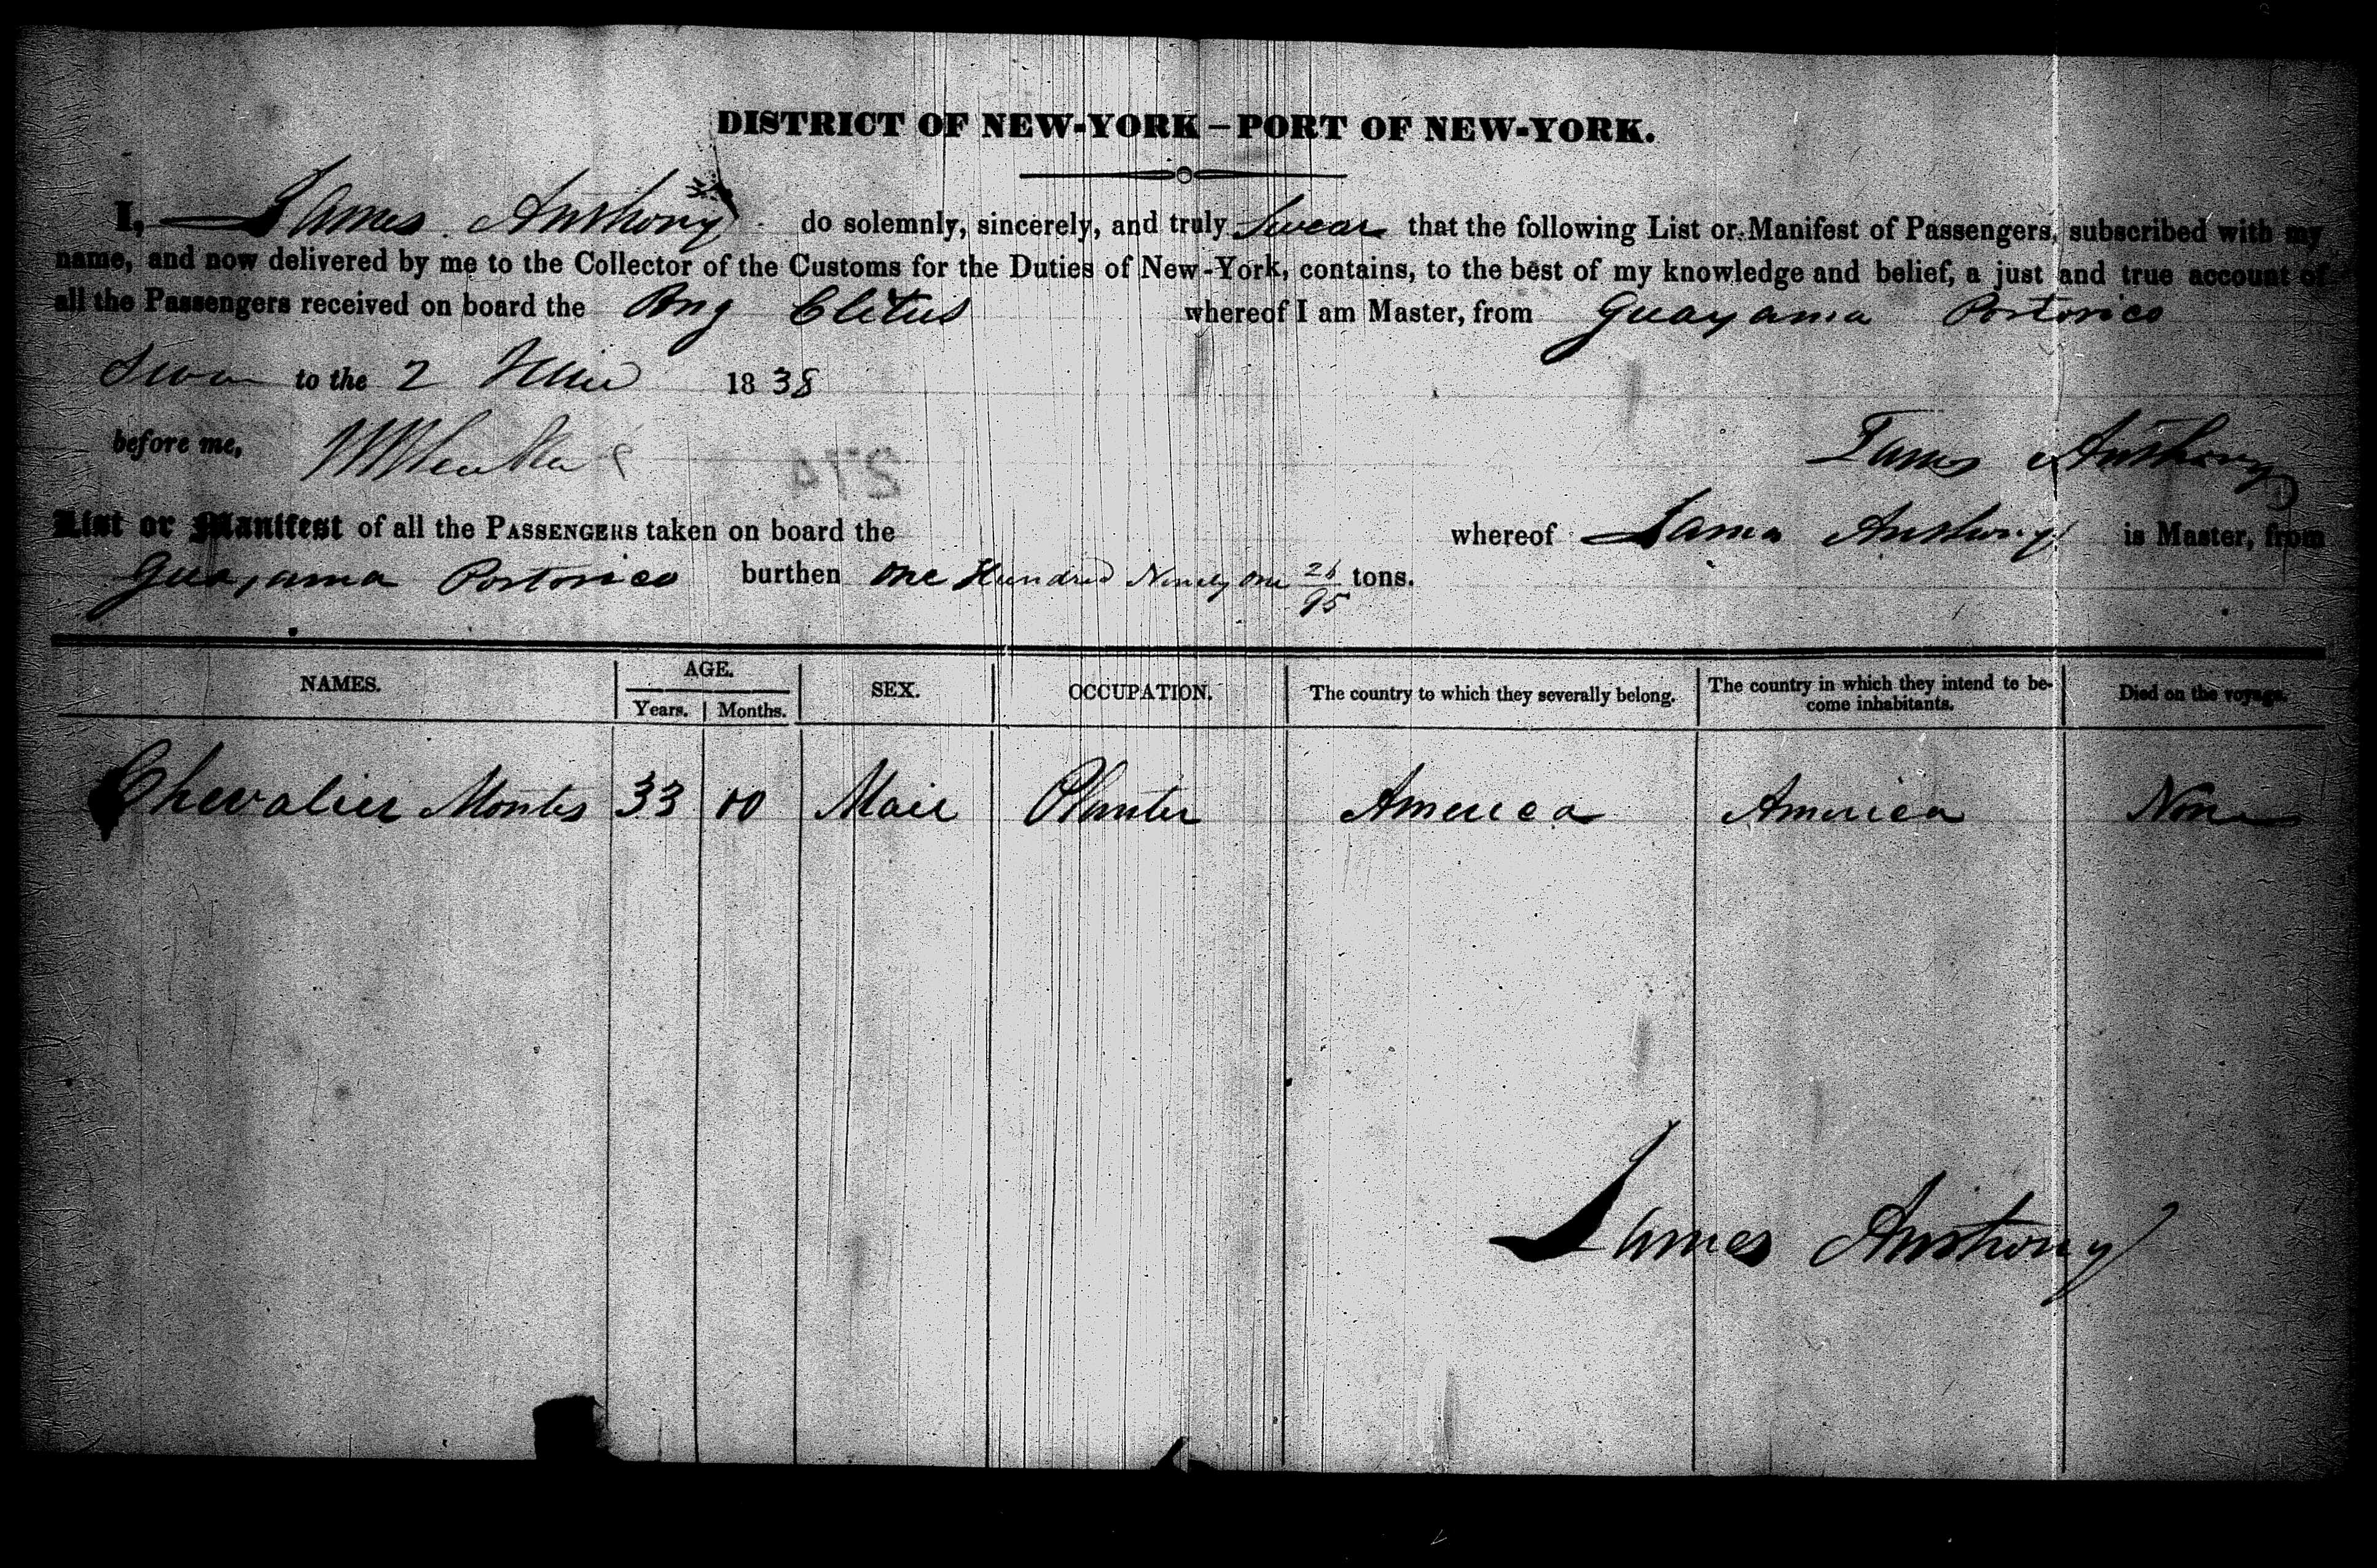 DISTRICT OF NEW-YORK – PORT OF NEW-YORK.
I, James Anthony do solemnly, sincerely, and truly Swear that the following List or Manifest of Passengers, subscribed with my
name, and now delivered by me to the Collector of the Customs for the Duties of New-York, contains, to the best of my knowledge and belief, a just and true account of
all the Passengers received on board the Brig Clitus whereof I am Master, from Guayama Portorico
Sworn to the 2 June 1838
before me,
James Anthony
List or Manifest of all the PASSENGERS taken on board the whereof James Anthony is Master, from
Guayama Portorico burthen One Hundred Ninety One 26/95 tons.
NAMES. AGE. SEX. OCCUPATION. The country to which they severally belong. The country in which they intend to be-come inhabitants. Died on the voyage.
Years. Months.
Chevalier Montes 33 00 Male Planter America America None
James Anthony